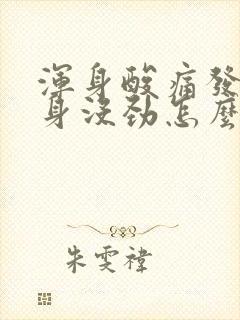 渾身酸痛發
身沒勁怎麼
朱雯禕